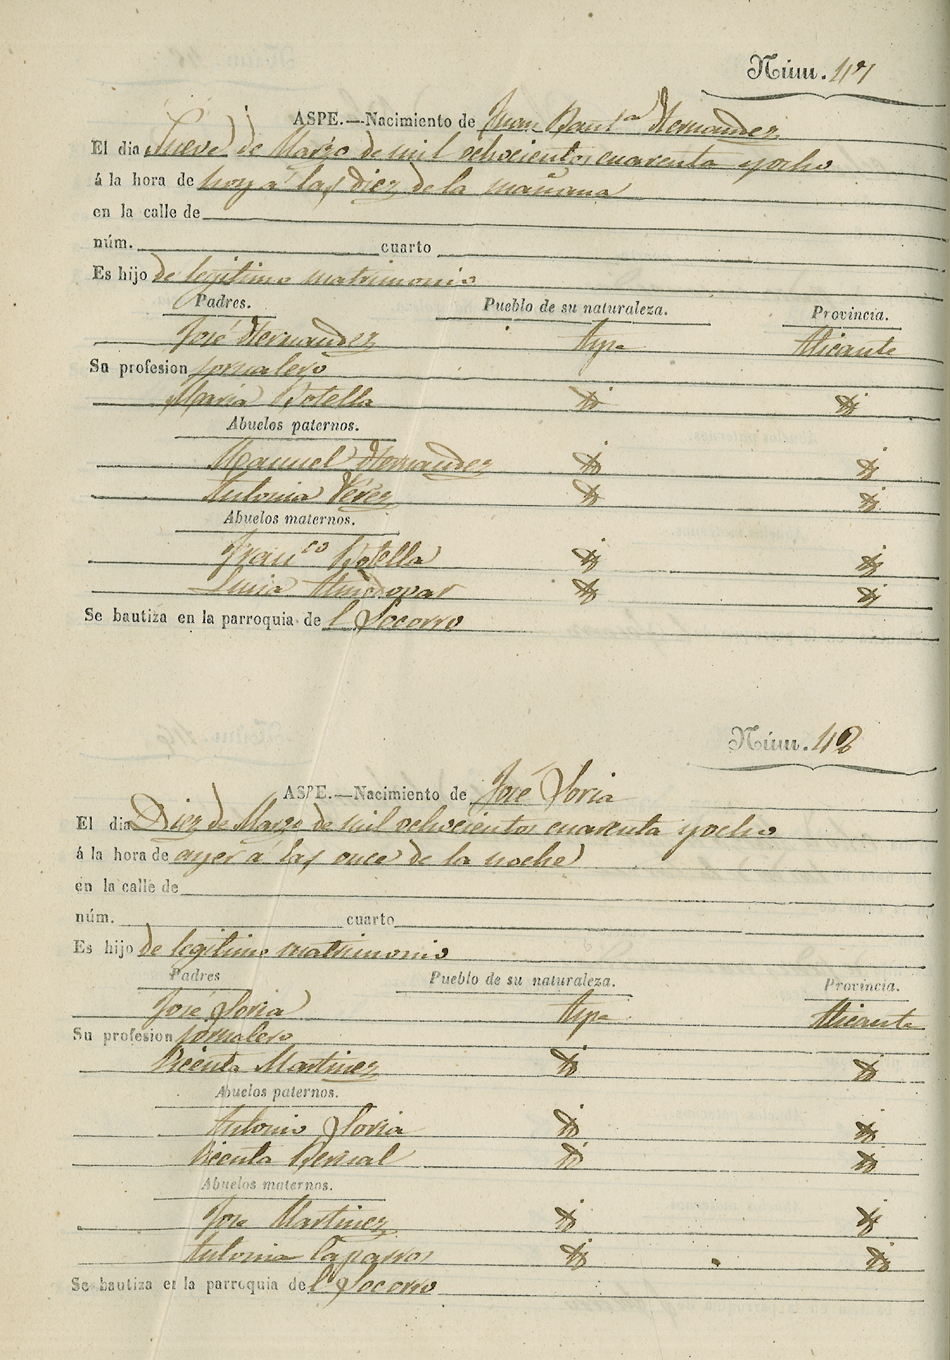 Núm. 117
ASPE.—Nacimiento de Juan Baut.ta Hernandez
El dia Nueve de Marzo de mil ochocientos cuarenta y ocho
á la hora de hoy á las diez de la mañana
en la calle de
núm. cuarto
Es hijo de legitimo matrimonio
Padres. Pueblo de su naturaleza. Provincia.
José Hernandez Aspe Alicante
Su profesion jornalero
Maria Botella
Abuelos paternos.
Manuel Hernandez
Antonia Perez
Abuelos maternos.
Fran.co Botella
Lucia Almodovar
Se bautiza en la parroquia de l Socorro
Núm. 118
ASPE.—Nacimiento de José Soria
El dia Diez de Marzo de mil ochocientos cuarenta y ocho
á la hora de ayer á las once de la noche
en la calle de
núm. cuarto
Es hijo de legitimo matrimonio
Padres Pueblo de su naturaleza. Provincia.
José Soria Aspe Alicante
Su profesion jornalero
Vicenta Martinez
Abuelos paternos.
Antonio Soria
Vicenta Bernal
Abuelos maternos.
Jose Martinez
Antonia
Se bautiza en la parroquia de l Socorro